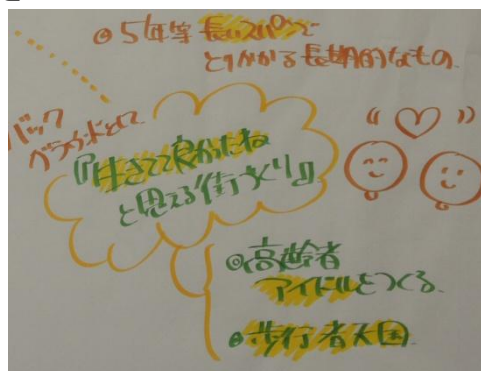 ◎5年等 長いスパンで
とりかかる長期的なもの.
バック
グラウンドとして
『生きてて良かったね
と思える街づくり』
◎高齢者
アイドルをつくる.
◎歩行者天国